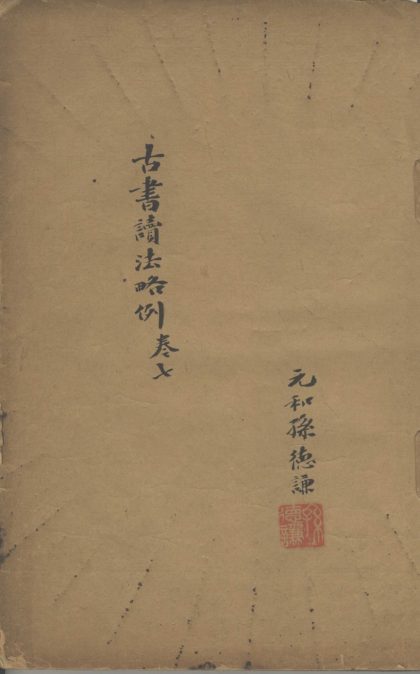 古書讀法略例卷七
元和孫德謙
孫德謙